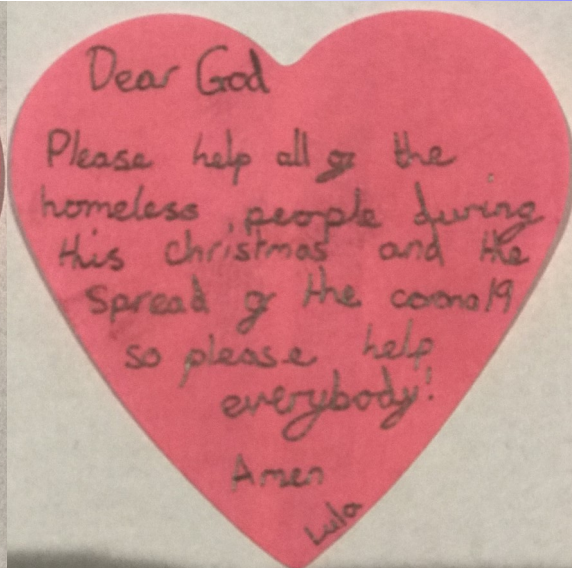 Dear God
Please help all of the
homeless people during
this christmas and the
spread of the corona19
so please help
everybody!
Amen
Lula